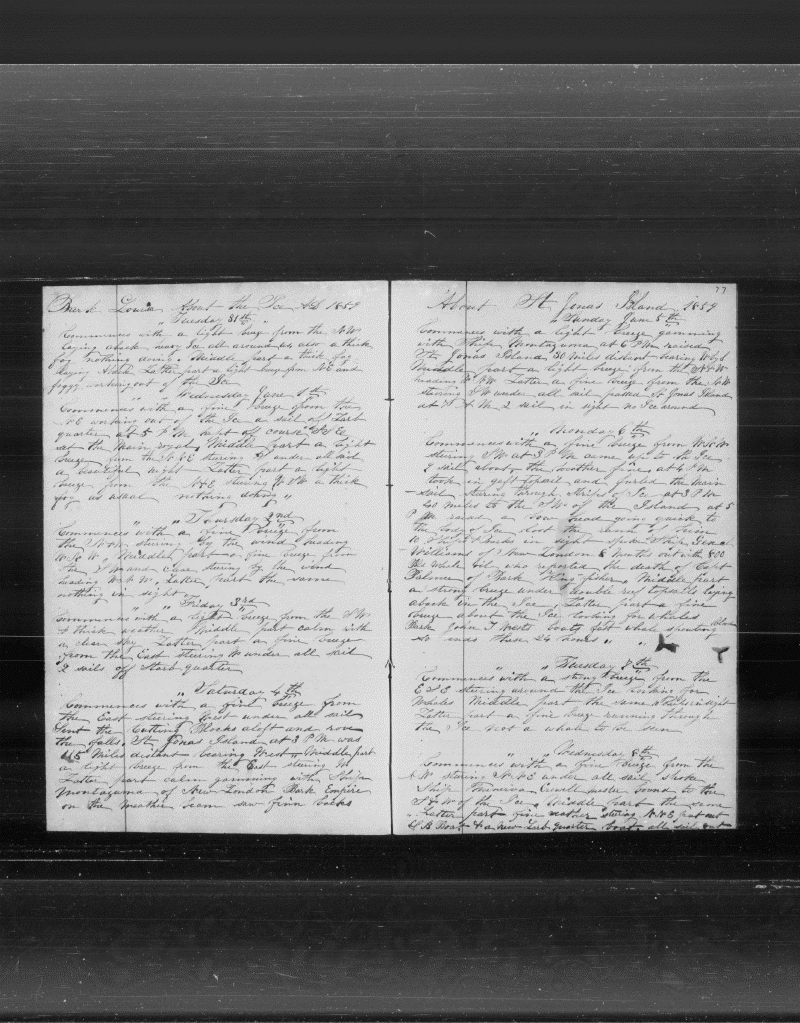 Bark Louisa About the Ice AD 1859
" Tuesday 31th
Commences with a light breeze from the NW
laying aback
fog nothing doing. Middle part a thick fog
laying Aback Latter part a light breeze from NE and
foggy working out of the Ice
" Wednesday June 1th
Commences with a fine breeze from the
NE working out of the Ice a sail off Starb
quarter at 5 P.M. kept off course SSE
set the main royal, Middle part a light
breeze from the under all sail
a beautiful night Latter part a light
breeze from the a thick
fog as usual nothing doing "
" " Thursday 2nd
Commences with a fine breeze from
the by the wind heading
Middle part a fine breeze from
the SW and steering by the wind
heading Latter part the same
nothing in sight
" " Friday 3rd
Commences with a light breeze from the SW
& thick weather Middle part calm with
a clear sky Latter part a fine breeze
from the East steering W under all sail
2 sails off Starb quarter
" Saturday 4th
Commences with a fine breeze from
the East steering West under all sail
Sent the Cutting Blocks aloft and rove
the falls. St Jonas Island at 3 P.M. was
45 Miles distant bearing West Middle part
a light breeze from the East steering W
Latter part calm gamming with Ship
Montezuma of New London Bark Empire
on the weather beam saw finn backs
77
About St Jonas Island 1859
" Sunday June 5th
Commences with a light breeze gamming
with Ship Montezuma at 6 P M raised
St Jonas Island 30 Miles distant bearing W by S
Middle part a light breeze from the
heading Latter a fine breeze from the NW
steering SW under all sail passed St Jonas Island
at A M 2 sail in sight no Ice around
" Monday 6th
Commences with a fine breeze from
steering SW at 3 P M came up to the Ice
9 sail about, the weather fine, at 4 P M
took in gaff topsail and furled the main
sail steering through Strips of Ice at 5 P M
20 miles to the SW of the Island at 5
P M raised a bow head going quick to
the body of Ice lost the
10 Ships & Barks in sight spoke Ship Genl
Williams of New London 8 Months out with 800
bbls Whale Oil who reported the death of Capt
Palmer of Bark King fisher, Middle part
a strong breeze under double reef topsails laying
aback in the Ice Latter part a fine
breeze about the Ice looking for whales
Bark John T West boats fast whale spouting Blood
So ends these 24 hours " "
" " Tuesday 7th
Commences with a strong breeze from the
ESE steering around the Ice looking for
Whales Middle part the same 4 Ships in sight
Latter part a fine breeze running through
the Ice not a whale to be seen
" Wednesday 8th
Commences with a fine breeze from the
SW steering NNE under all sail spoke
Ship Minerva master bound to the
SW of the Ice, Middle part the same
Latter part fine weather steering NNE put out
B Boat & a new Larb quarter boat all sail out